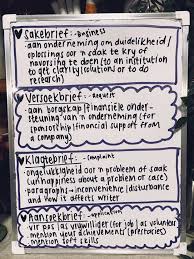 Sakebrief: - Business
- aan onderneming om duidelikheid/
oplossings oor 'n saak te kry of
navorsing te doen (to an institution
to get clarity/solution/ or to do
research)
Versoekbrief: - Request
- aan borgskap/finansiële onder-
steuning van 'n onderneming (for
sponsorship/financial support from
a company)
Klagtebrief: - Complaint
- ongelukkigheid oor 'n probleem of saak
(unhappiness about a problem or case)
- paragraphs → inconvenience/disturbance
and how it affects writer
Aansoekbrief: - application
- vir pos/as vrywilliger (for job/as volunteer)
- mention your achievements (prestasies)
- mention soft skills